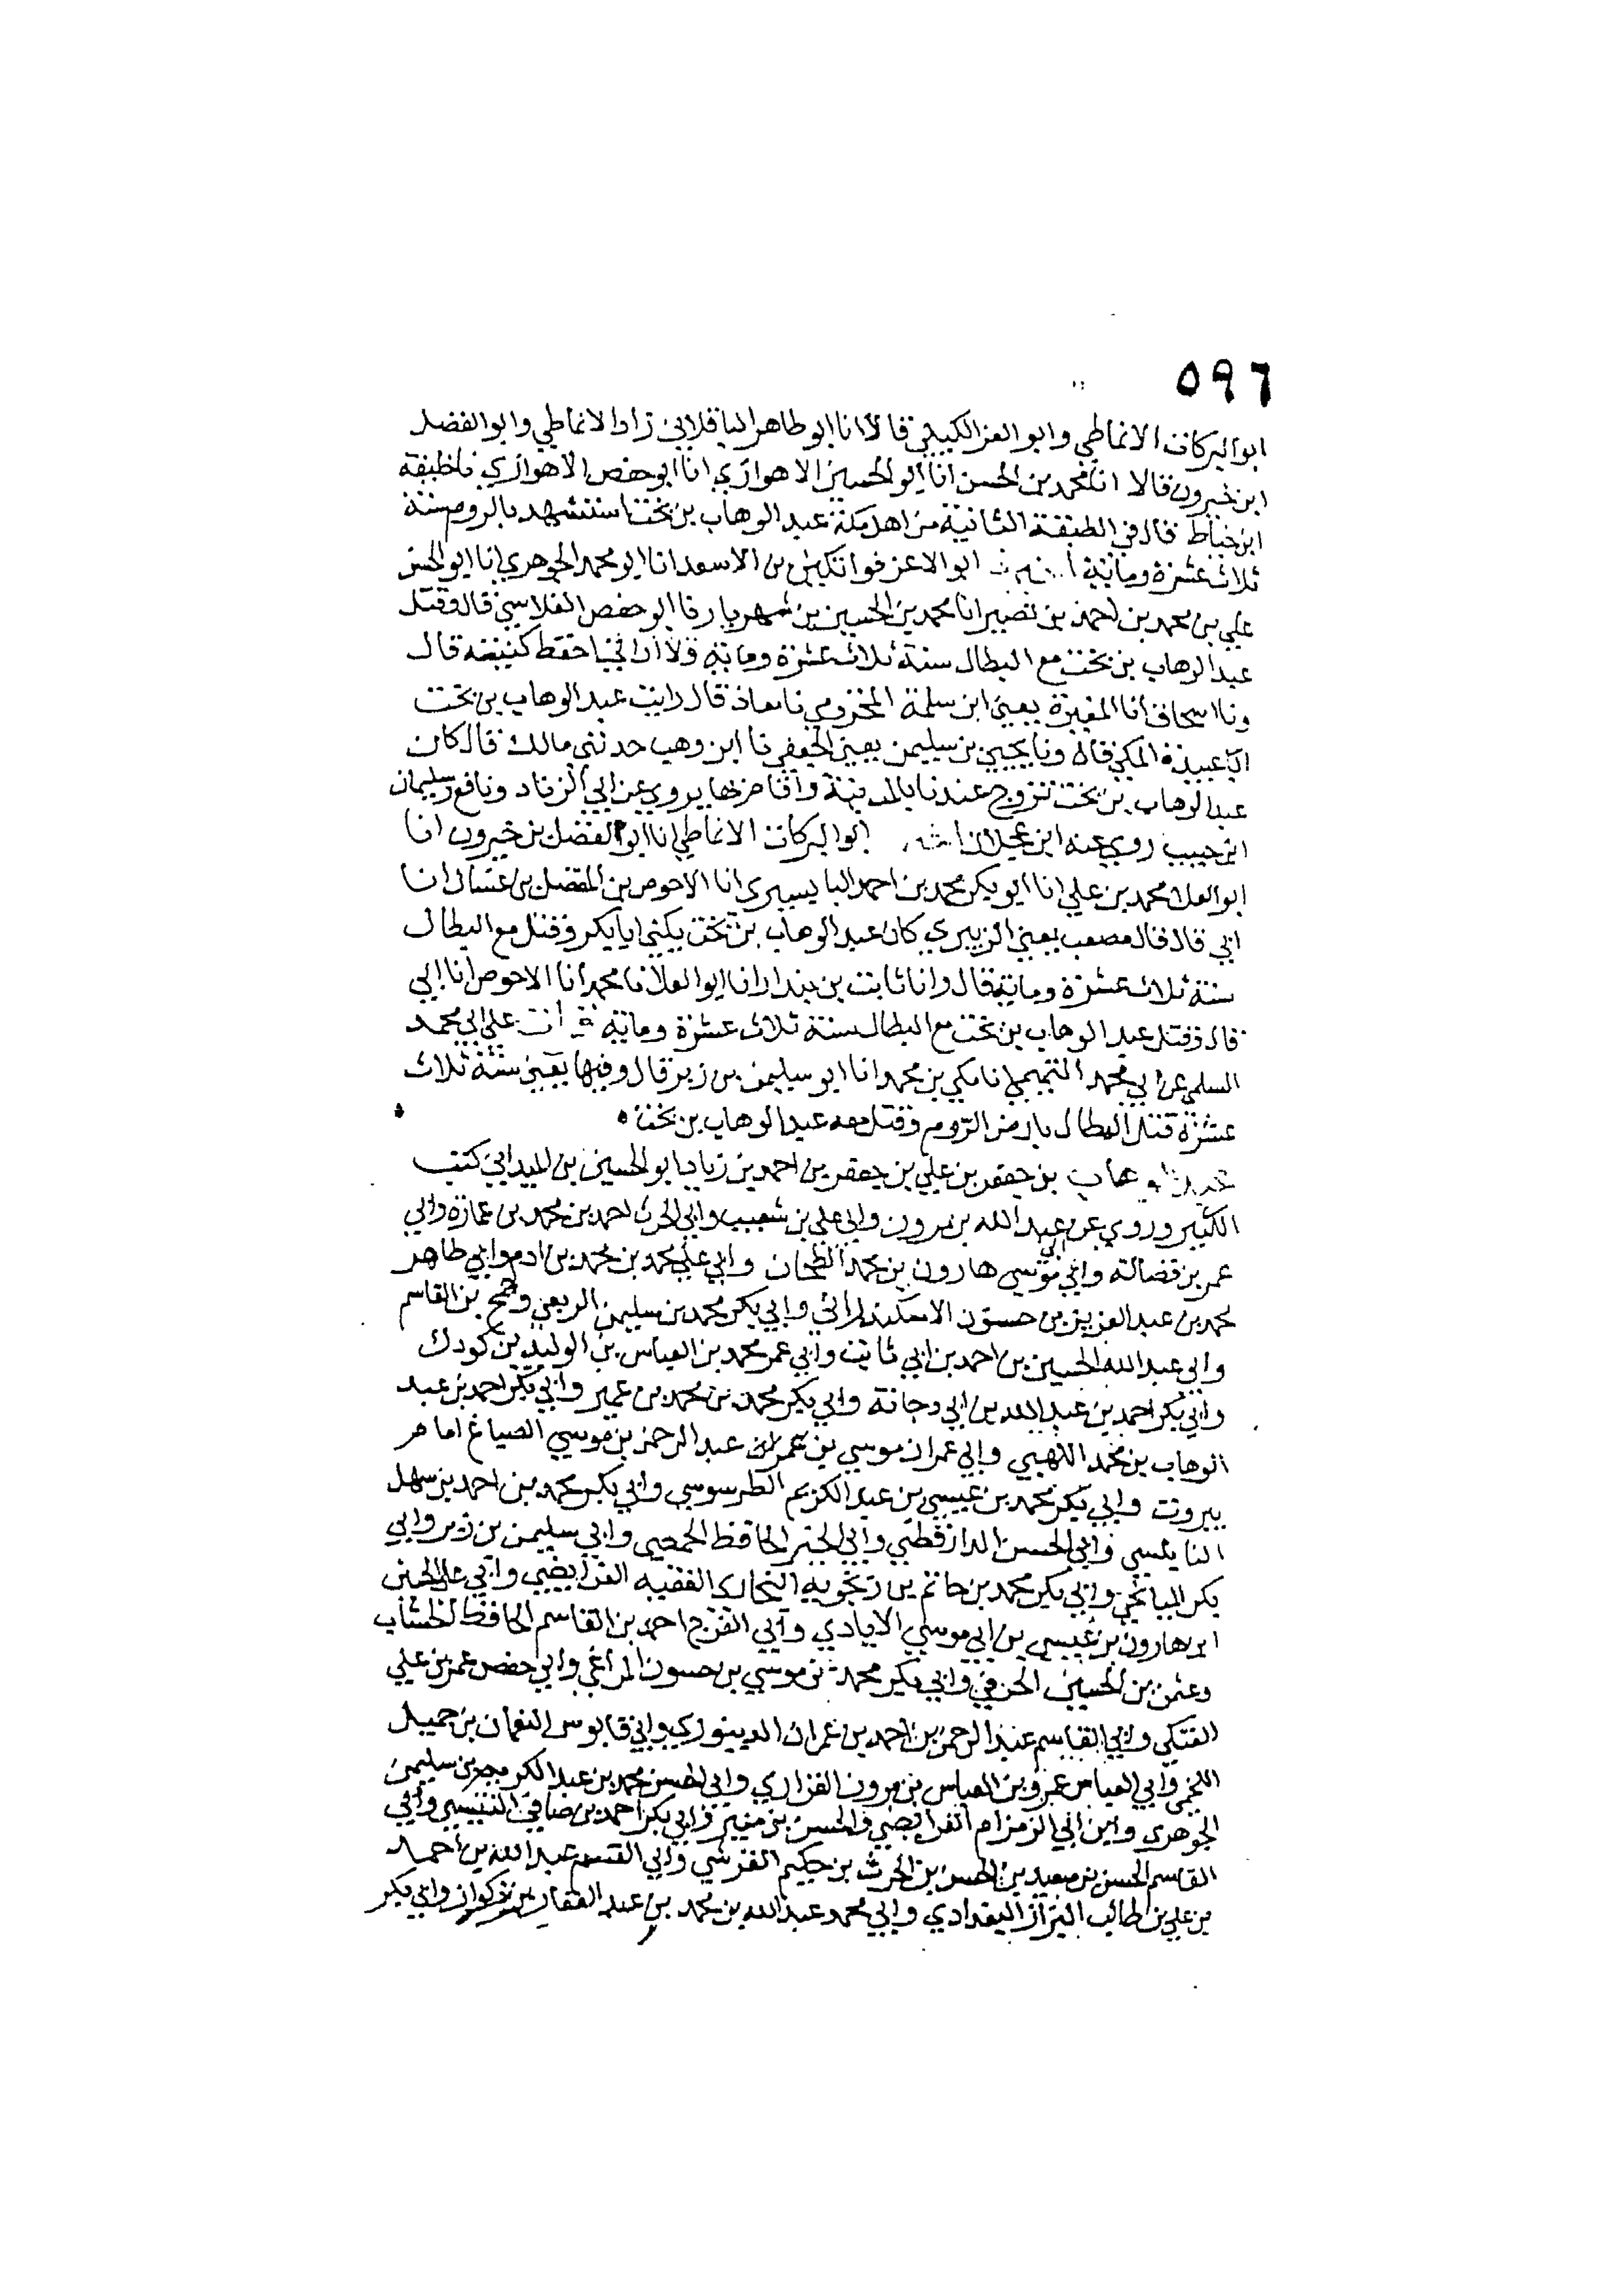 ٥٩٦
ابوالبركات الانماطي وابو العز الكيلي قالا انا ابو طاهر الباقلاني زاد الانماطي وابو الفضل
ابن خيرون قالا انا محمد بن الحسن انا ابو الحسين الاهوازي انا ابو حفص الاهوازي نا خليفة
ابن خياط قال في الطبقة الثانية من اهل مكة عبد الوهاب بن بخت استشهد بالروم سنة
ثلاث عشرة وماية ابو الاعز قراتكين بن الاسعد انا ابو محمد الجوهري انا ابو الحسن
علي بن محمد بن احمد بن نصير انا محمد بن الحسين بن شهريار نا ابو حفص الفلاسي قال وقتل
عبد الوهاب بن بخت مع البطال سنة ثلاث عشرة وماية ولا اراني احفظ كنيته قال
ونا اسحاق انا المغيرة يعني ابن سلمة المخزومي نا معاذ قال رايت عبد الوهاب بن بخت
ابا عبيدة المكي قال ونا يحيى بن سليمن يعني الجعفي نا ابن وهب حدثني مالك قال كان
عبد الوهاب بن بخت تزوج عندنا بالمدينة واقام بها يروي عن ابي الزناد ونافع وسليمان
ابن حبيب روي عنه ابن عجلان ابو البركات الانماطي انا ابو الفضل بن خيرون انا
ابو العلا محمد بن علي انا ابو بكر محمد بن احمد البابسيري انا الاحوص بن المفضل بن غسان انا
ابي قال قال مصعب يعني الزبيري كان عبد الوهاب بن بخت يكنى ابا بكر وقتل مع البطال
سنة ثلاث عشرة وماية قال وانا ثابت بن بندار انا ابو العلا نا محمد انا الاحوص انا ابي
قال وقتل عبد الوهاب بن بخت مع البطال سنة ثلاث عشرة وماية قرأت علي ابي محمد
السلمي عن ابي محمد التميمي انا مكي بن محمد انا ابو سليمن بن زبر قال وفيها يعني سنة ثلاث
عشرة قتل البطال بارض الروم وقتل معه عبد الوهاب بن بخت ه
عبد الوهاب بن جعفر بن علي بن جعفر بن احمد بن زياد ابو الحسين بن الميداني كتب
الكثير وروي عن عبد الله بن مرون وابي علي بن شعيب وابي الحرث احمد بن محمد بن عمارة وابي
عمر بن فضالة وابي موسى هارون بن محمد الطحان وابي علي محمد بن محمد بن ادم وابي طاهر
محمد بن عبد العزيز بن حسنون الاسكندراني وابي بكر محمد بن سليمن الربعي وجمح بن القاسم
وابي عبد الله الحسين بن احمد بن ابي ثابت وابي عمر محمد بن العباس بن الوليد بن كودك
وابي بكر احمد بن عبد الله بن ابي دجانة وابي بكر محمد بن محمد بن عمير وابي بكر احمد بن عبد
الوهاب بن محمد اللهبي وابي عمران موسي بن عمران عبد الرحمن بن موسي الصباغ امام
بيروت وابي بكر محمد بن عيسي بن عبد الكريم الطرسوسي وابي بكر محمد بن احمد بن سهل
النابلسي وابي الحسن الدارقطني وابي الخير الحافظ الحمصي وابي سليمن بن زبر وابي
بكر الميانجي وابي بكر محمد بن حاتم بن زنجويه البخاري الفقيه الفرايضي وابي علي الحسن
ابن هارون بن عيسي بن ابي موسي الايادي وابي الفرج احمد بن القاسم الحافظ الخشاب
وعثمن بن الحسين الخرقي وابي بكر محمد بن موسي بن حسون المراغي وابي حفص عمر بن علي
العتكي وابي القاسم عبد الرحمن بن احمد بن عمران الدينوري وابي قابوس النعمان بن جميل
اللخمي وابي العباس عمرو بن العباس بن مرون الفزاري وابي الحسن محمد بن عبد الكريم بن سليمن
الجوهري وابن ابي الزمزام الفرايضي والحسن بن منير وابي بكر احمد بن صافي التنيسي وابي
القاسم الحسن بن سعيد بن الحسن بن الحرث بن حكيم القرشي وابي القسم عبد الله بن احمد
بن علي بن طالب البزاز البغدادي وابي محمد عبد الله بن محمد بن عبد الغفار بن ذكوان وابي بكر